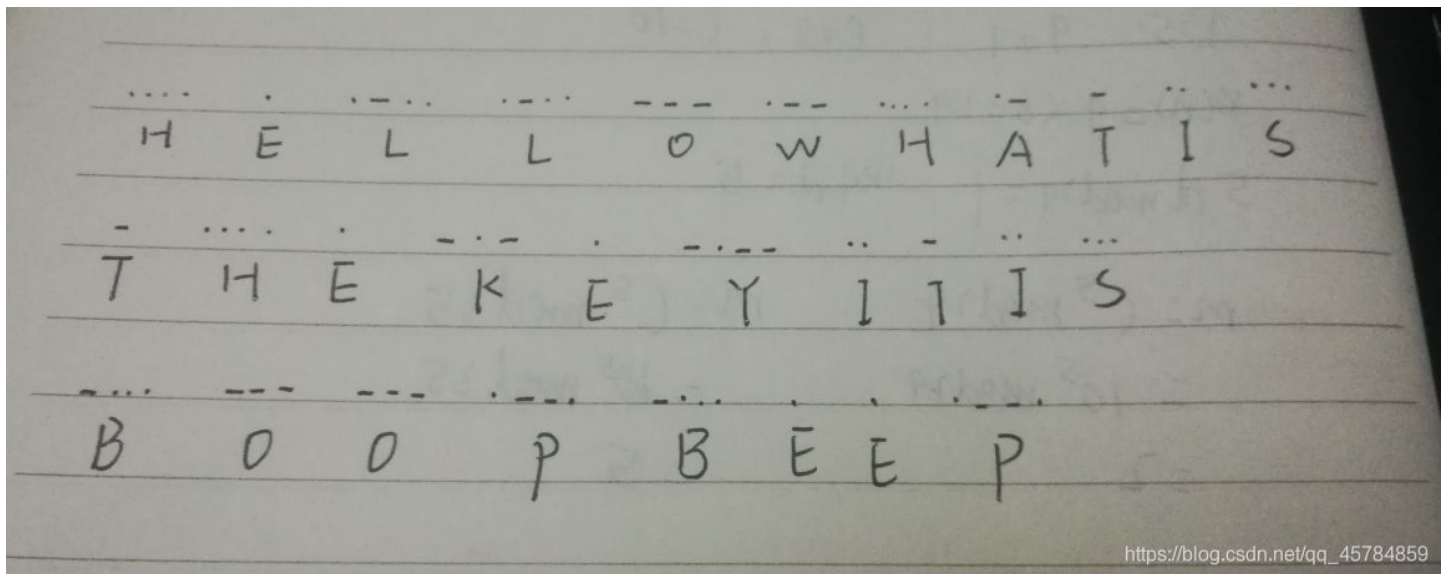 .... . .-.. .-.. --- .-- .... .- - .. ...
H E L L O W H A T I S
- .... . -.- . -.-- .. - .. ...
T H E K E Y I T I S
-... --- --- .--. -... . . .--.
B O O P B E E P
https://blog.csdn.net/qq_45784859